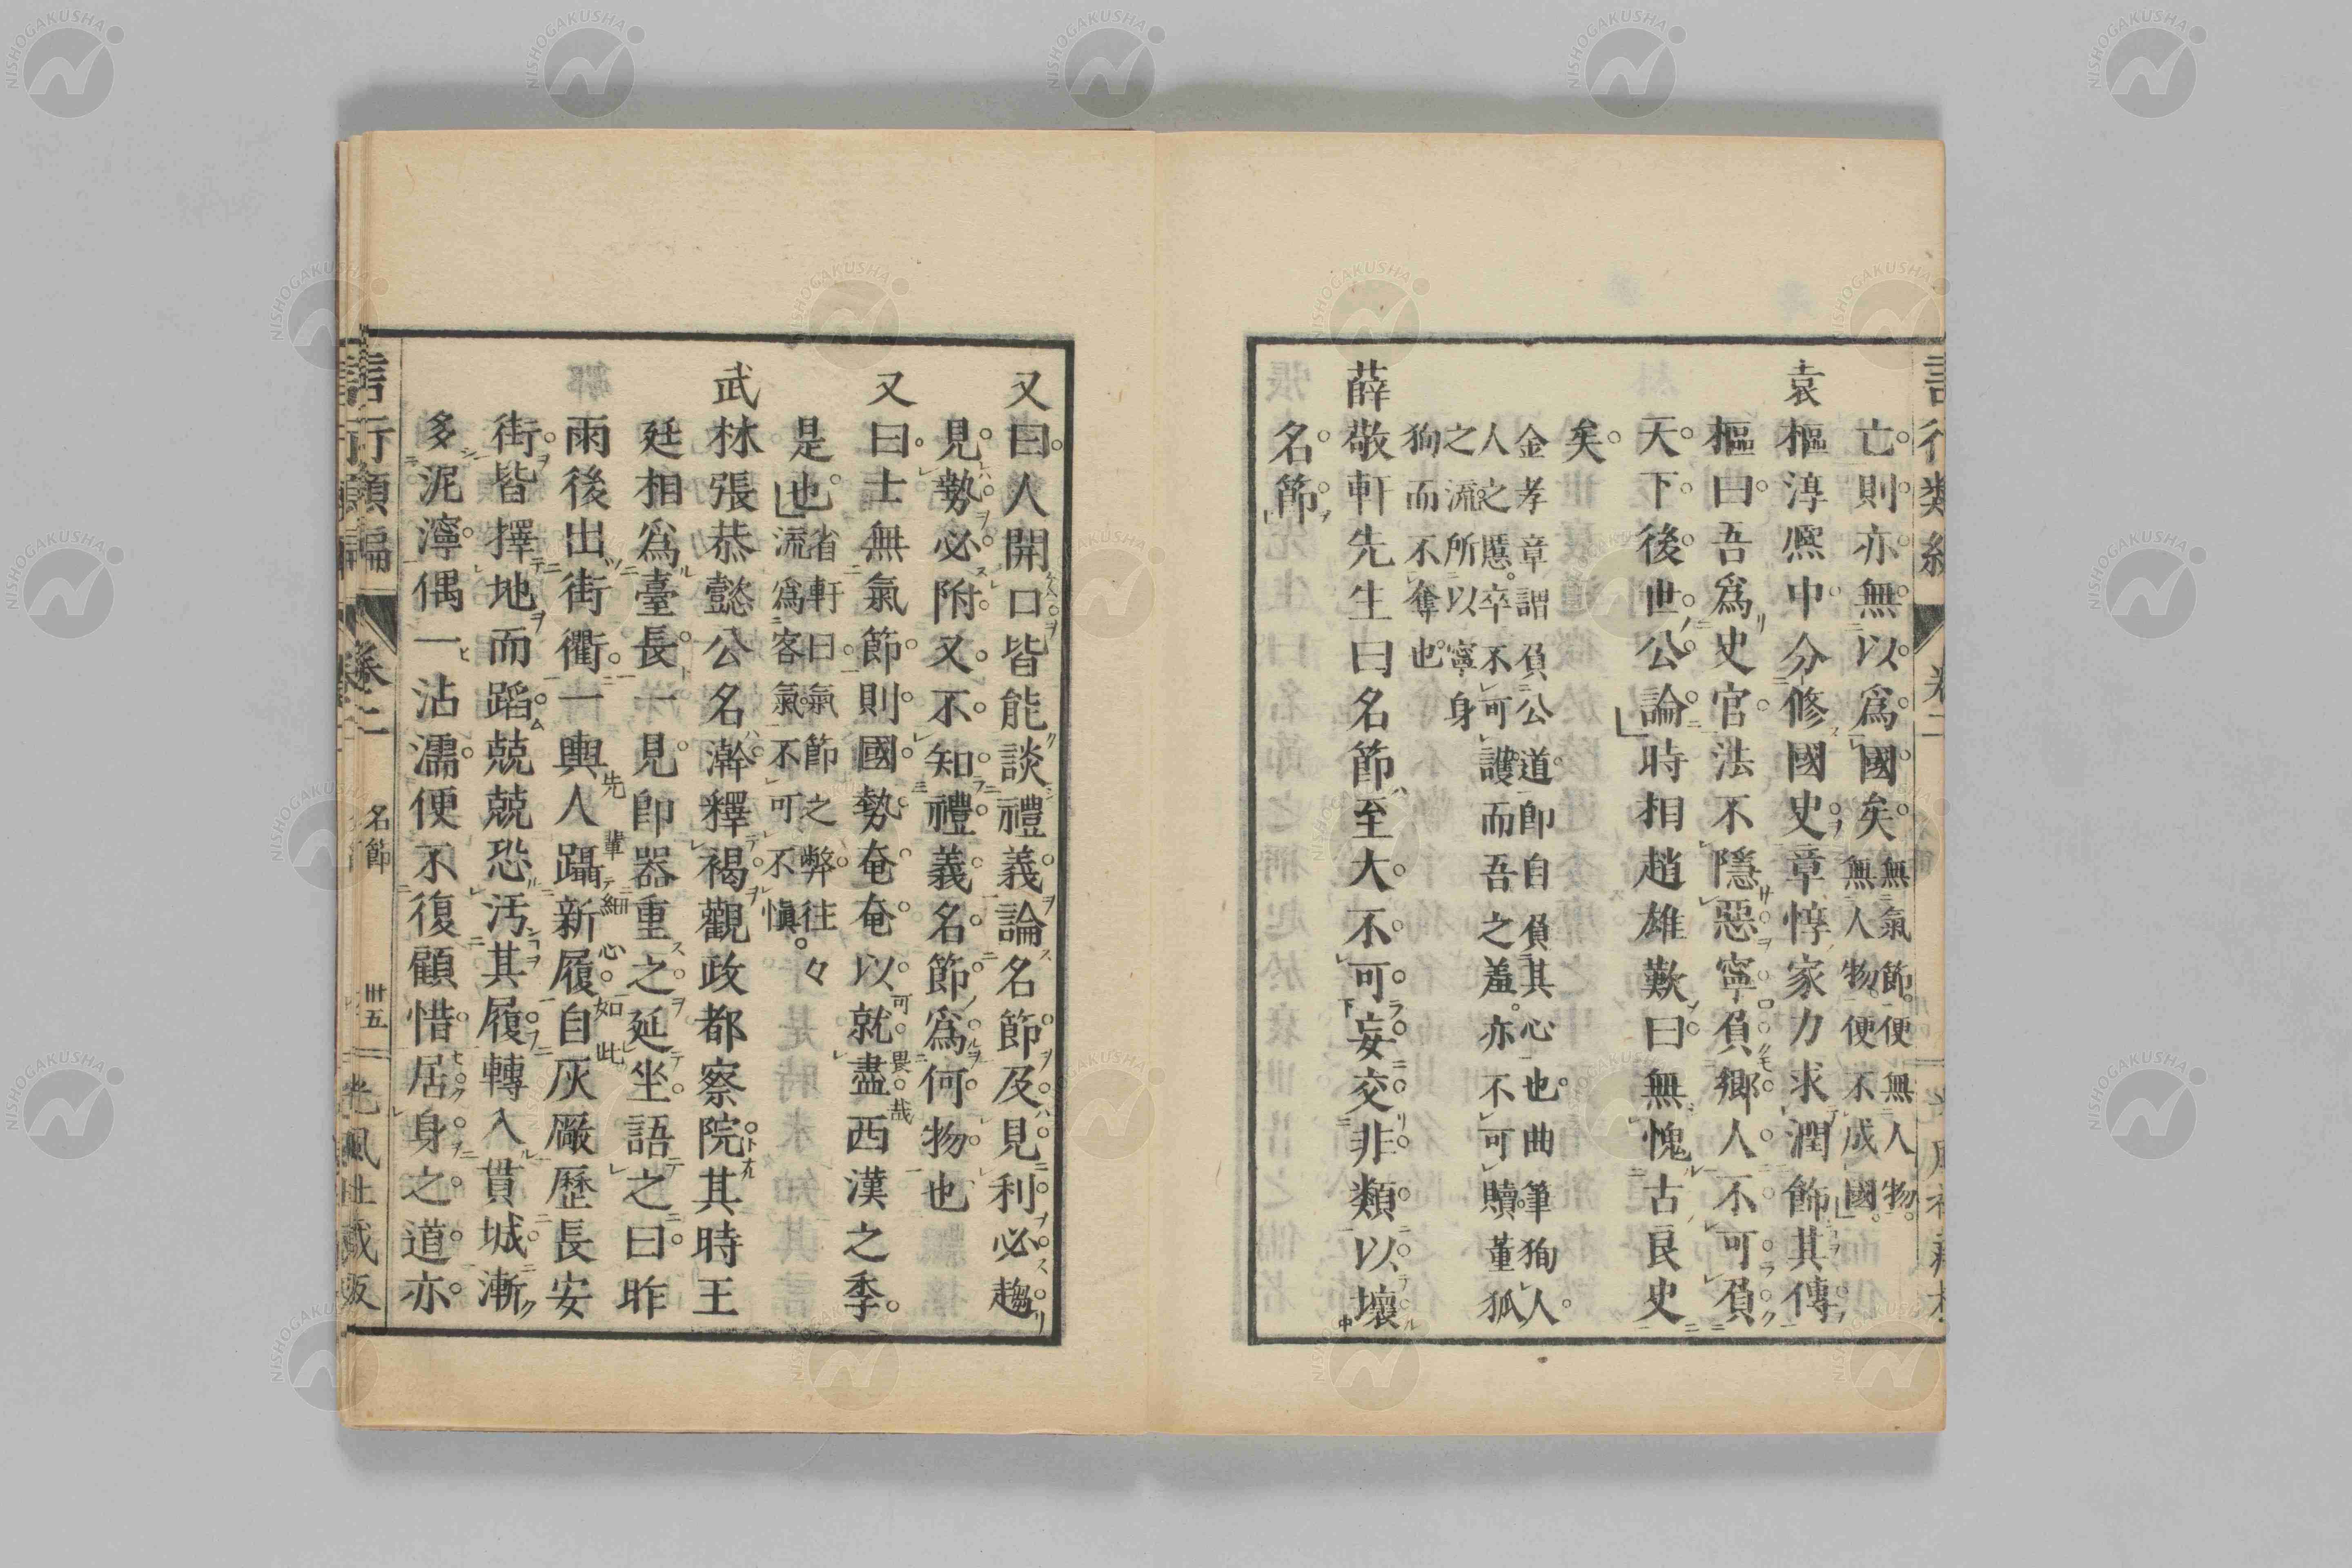 亡則亦無以爲國矣無氣節便無人物
無人物便不成國
袁樞淳熈中分修國史章惇家力求潤飾其傳
樞曰吾爲史官法不隱惡寧負鄉人不可負
天下後世公論時相趙雄歎曰無愧古良史
矣
金孝章謂負公道卽自負其心也曲筆狥人
人之慝卒不可護而吾之羞亦不可贖董狐
之流所以寧身
狥而不奪也
薛敬軒先生曰名節至大不可妄交非類以壞
名節
又曰人開口皆能談禮義論名節及見利必趨
見勢必附又不知禮義名節爲何物也
又曰士無氣節則國勢奄奄以就盡西漢之季
可畏哉
是也省軒曰氣節之弊往々
流爲客氣不可不愼
武林張恭懿公名澣釋褐觀政都察院其時王
廷相爲臺長一見卽器重之延坐語之曰昨
先輩細心如此
雨後出街衢一輿人躡新履自灰厰歷長安
街皆擇地而蹈兢兢恐汚其履轉入貫城漸
多泥濘偶一沾濡便不復顧惜居身之道亦
言行類編 卷二 名節 卅五 光風社蔵版
NISHOGAKUSHA